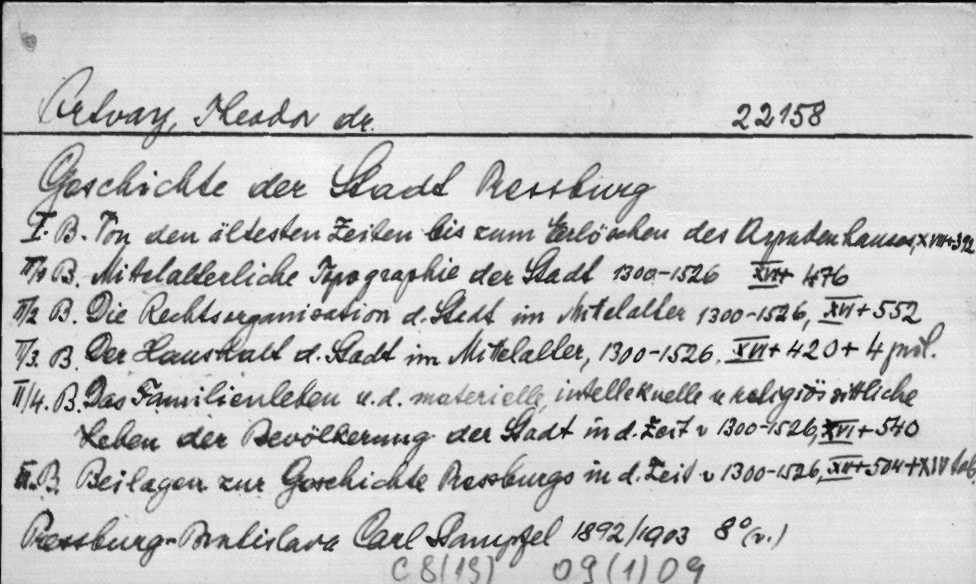 Ortvay, Theodor dr. 22158
Geschichte der Stadt Pressburg
I. B. Von den ältesten Zeiten bis zum Erlöschen des Arpadenhauses, XVIII+392
II/1 B. Mittelalterliche Topographie der Stadt 1300-1526 XVI+ 476
II/2 B. Die Rechtsorganisation d. Stadt im Mittelalter 1300-1526, XVI+552
II/3. B. Der Haushalt d. Stadt im Mittelalter, 1300-1526. XVI+420+4 pril.
II/4. B. Das Familienleben u.d. materielle, intellektuelle u religiös sittliche
Leben der Bevölkerung der Stadt in d. Zeit v 1300-1526, XVI+540
III. B. Beilagen zur Geschichte Pressburgs in d. Zeit v 1300-1526, XV+504+XIV tab.
Pressburg-Bratislava Carl Stampfel 1892/1903 8° (v.)
C8(19) 09(1)09